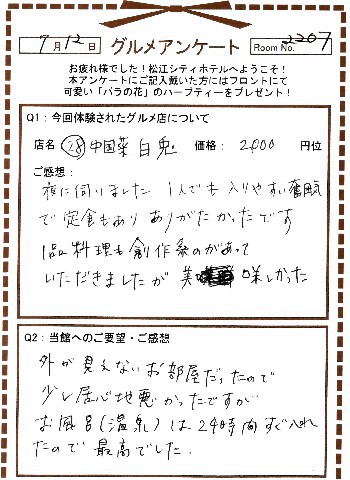 7月12日 グルメアンケート Room No. 2207
お疲れ様でした!松江シティホテルへようこそ!
本アンケートにご記入戴いた方にはフロントにて
可愛い「バラの花」のハーブティーをプレゼント!
Q1:今回体験されたグルメ店について
店名 ㉘中国菜 白兎 価格: 2000 円位
ご感想:
夜に伺いました 1人でも入りやすい雰囲気
で定食もあり ありがたかったです
1品料理も創作系のがあって
いただきましたが 美味しかった
Q2:当館へのご要望・ご感想
外が見えないお部屋だったので
少し居心地悪かったですが
お風呂(温泉)は24時間すぐ入れ
たので最高でした.